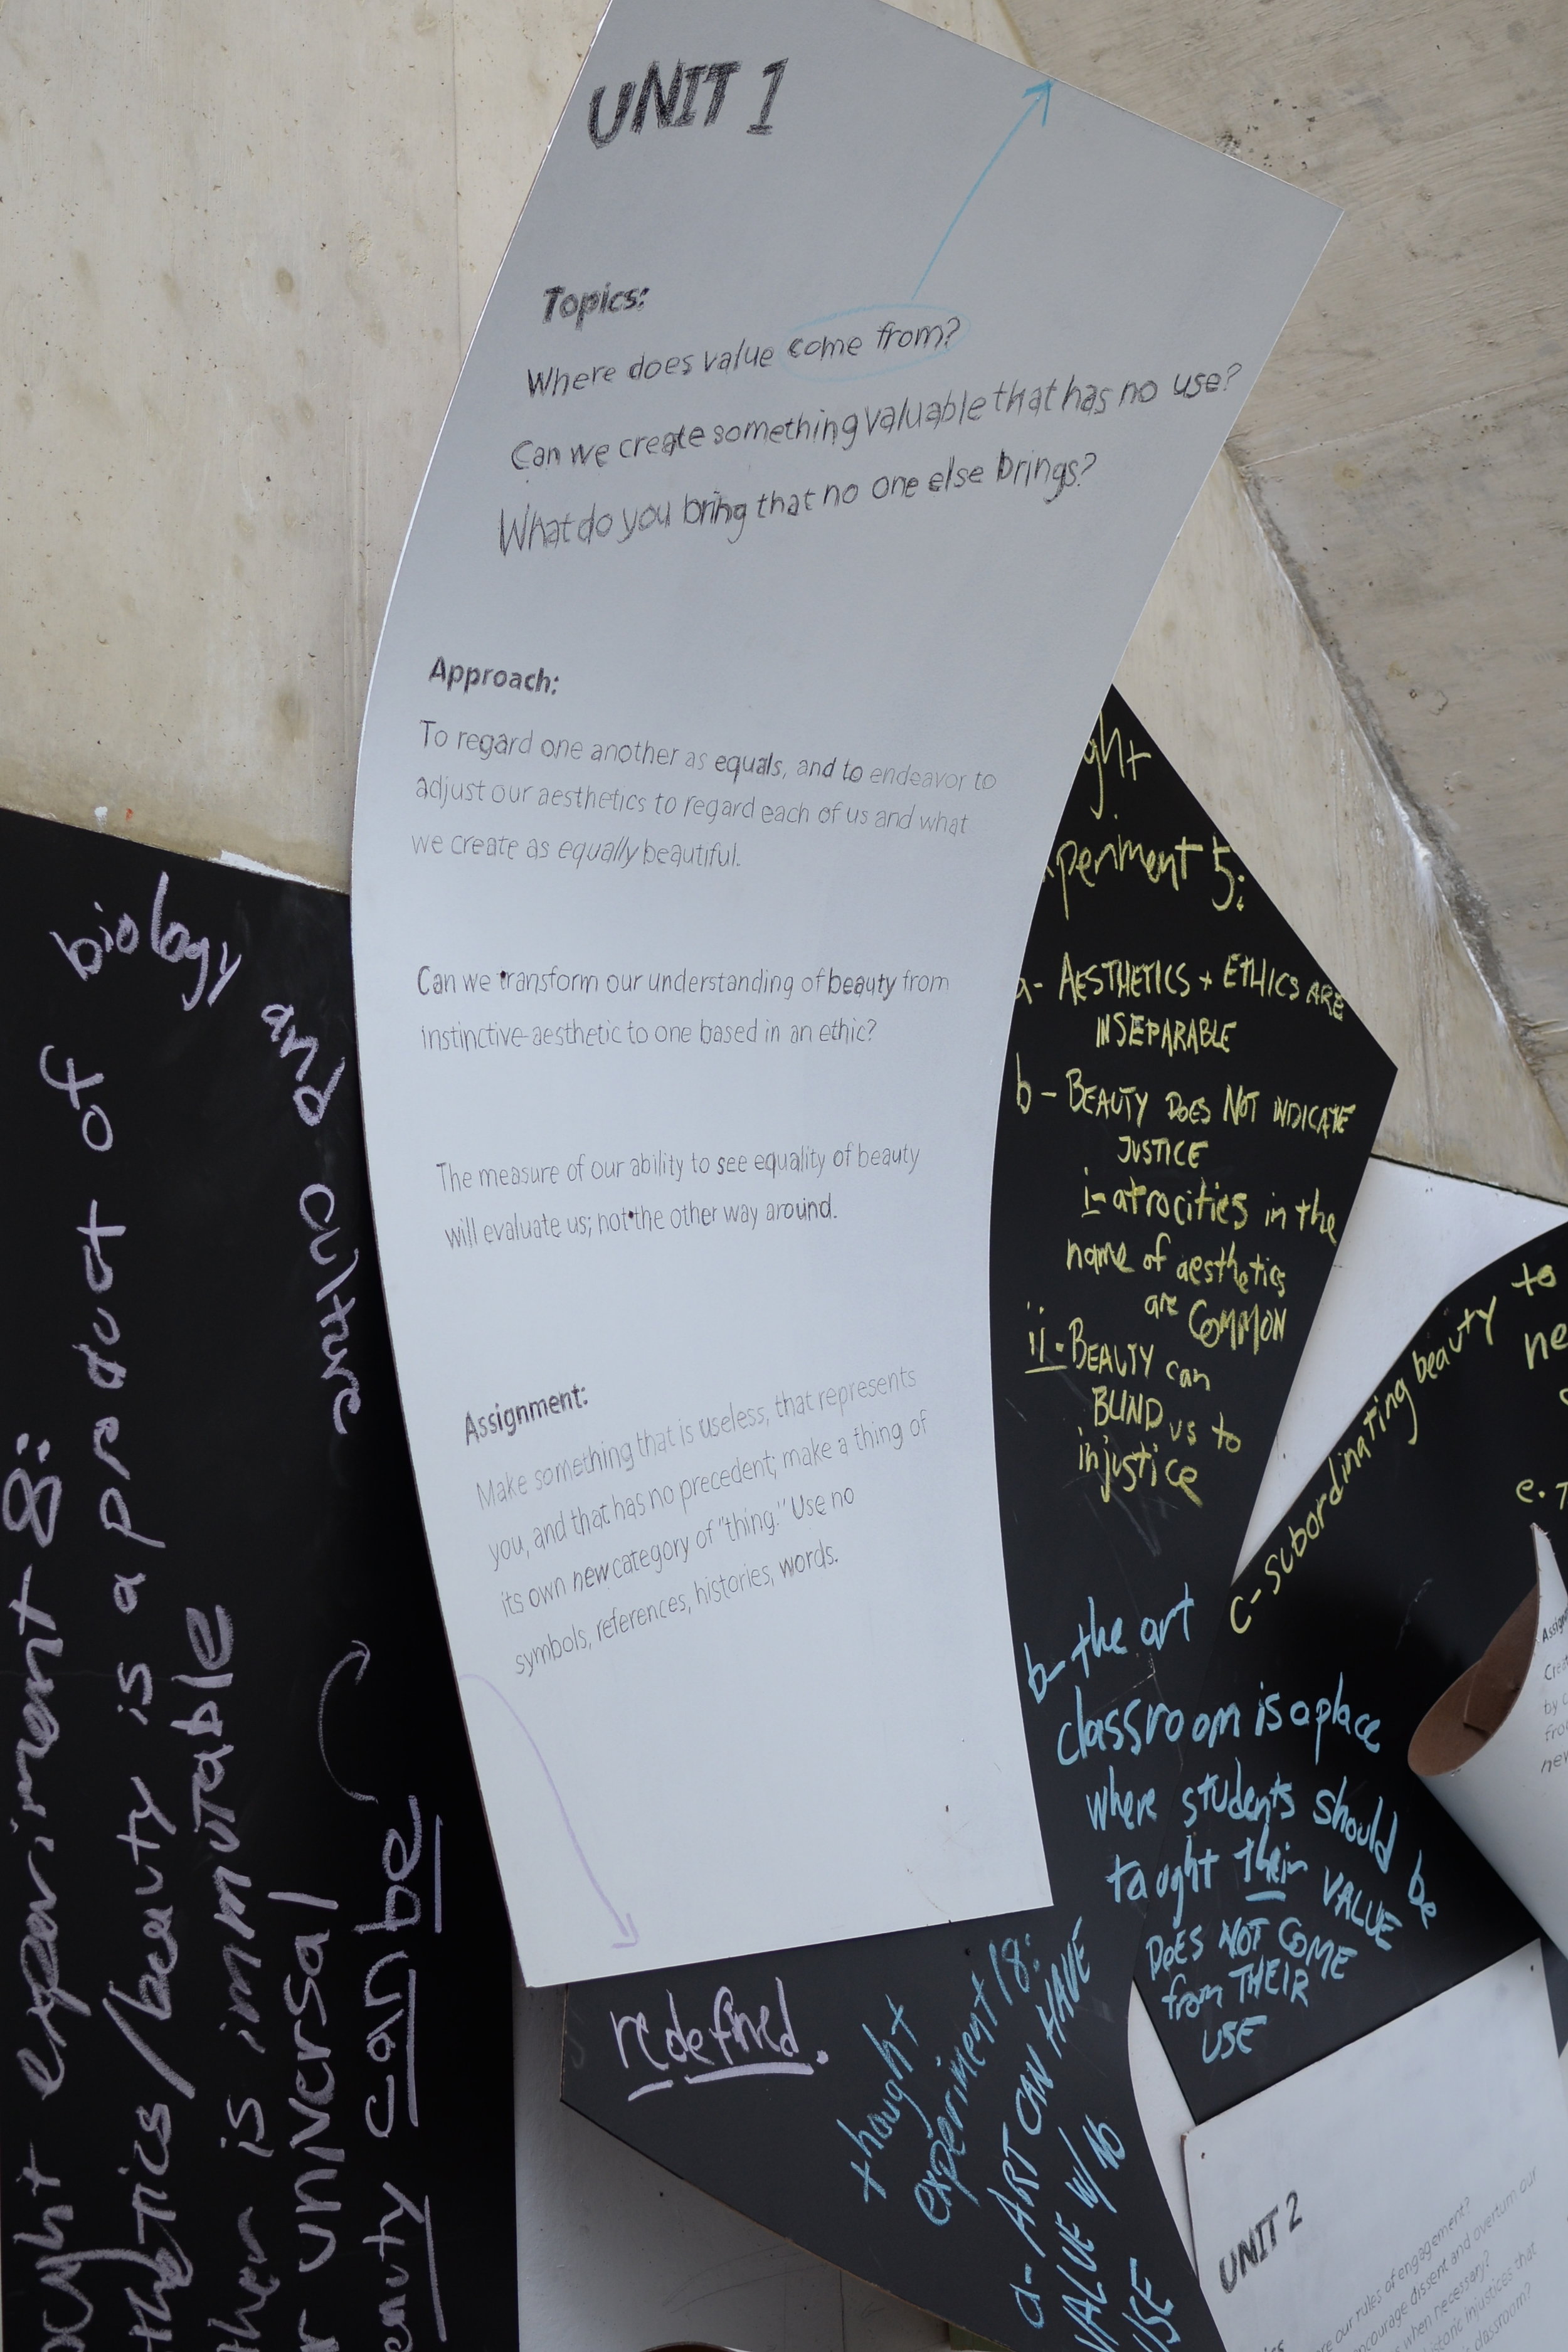 UNIT 1
Topics:
Where does value come from?
Can we create something valuable that has no use?
What do you bring that no one else brings?
Approach:
To regard one another as equals, and to endeavor to
adjust our aesthetics to regard each of us and what
we create as equally beautiful.
Can we transform our understanding of beauty from
instinctive aesthetic to one based in an ethic?
The measure of our ability to see equality of beauty
will evaluate us; not the other way around.
Assignment:
Make something that is useless, that represents
you, and that has no precedent; make a thing of
its own new category of "thing." Use no
symbols, references, histories, words.
experiment 8:
beauty is a product of
biology and culture
is immutable
universal
can be
redefined.
5:
a- AESTHETICS + ETHICS ARE
INSEPARABLE
b- BEAUTY DOES NOT INDICATE
JUSTICE
i- atrocities in the
name of aesthetics
are COMMON
ii- BEAUTY can
BLIND us to
injustice
c- subordinating beauty to
thought
experiment 18:
a- ART CAN HAVE
VALUE W/ NO
USE
b- the art
classroom is a place
where students should be
taught their VALUE
DOES NOT COME
from THEIR
USE
UNIT 2
our rules of engagement?
dissent and overturn our
when necessary?
injustices that